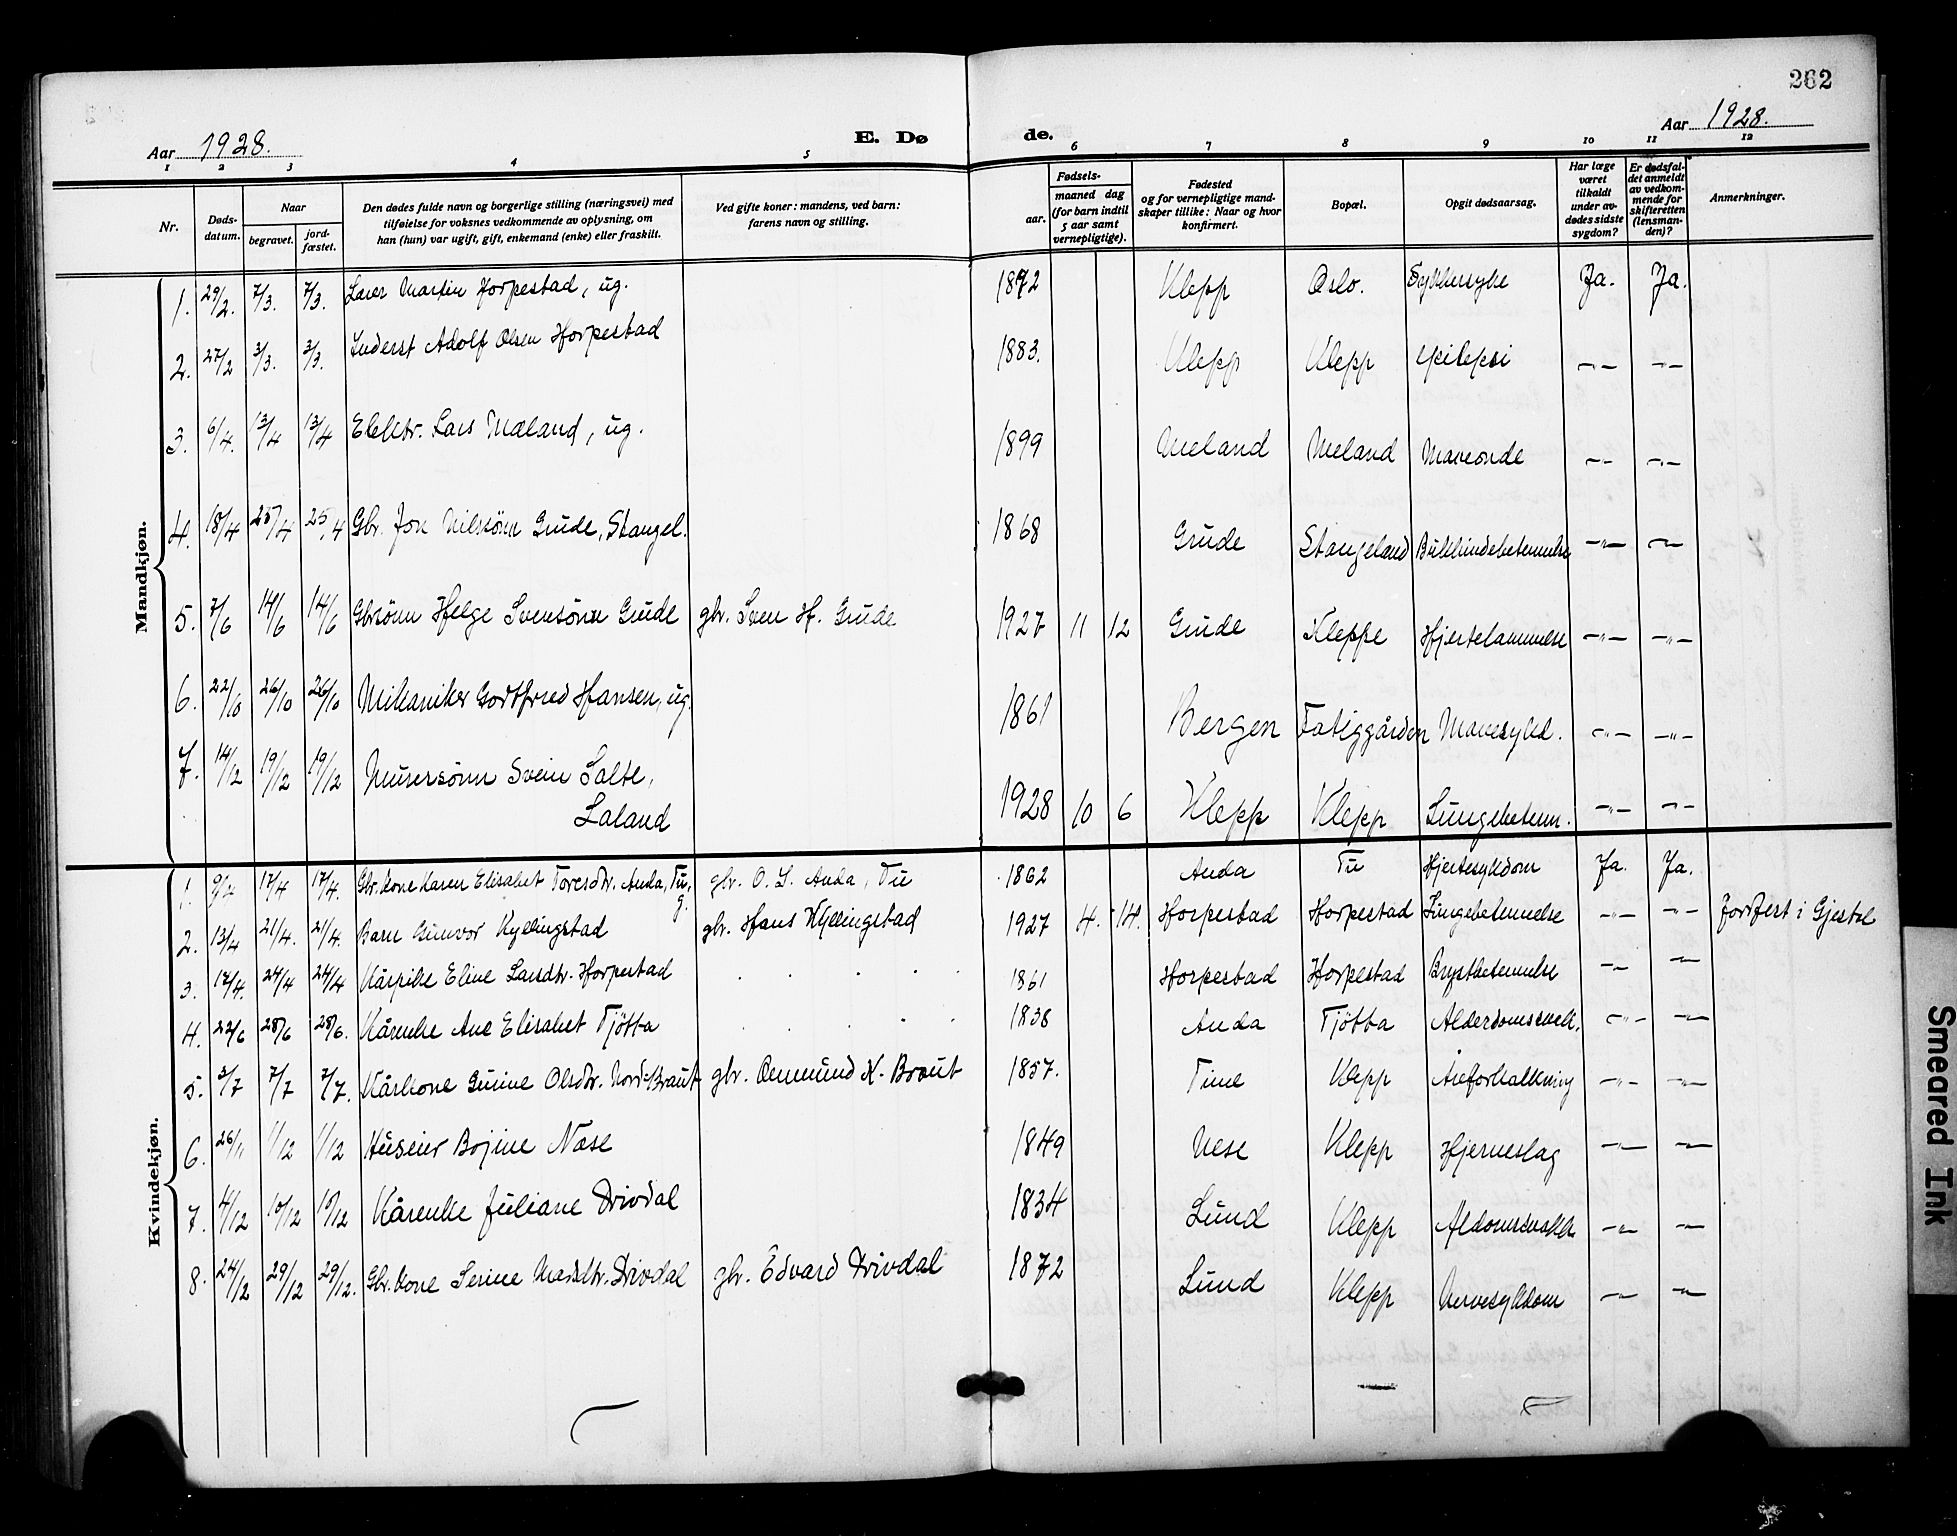 262
Aar 1928.
E. Dø de.
Aar 1928.
1 2 3 4 5 6 7 8 9 10 11 12
Nr.
Døds-
datum.
Naar
begravet.
jord-
fæstet.
Den dødes fulde navn og borgerlige stilling (næringsvei) med
tilføielse for voksnes vedkommende av oplysning, om
han (hun) var ugift, gift, enkemand (enke) eller fraskilt.
Ved gifte koner: mandens, ved barn:
farens navn og stilling.
Fødsels-
aar.
maaned dag
(for barn indtil
5 aar samt
vernepligtige).
Fødested
og for vernepligtige mand-
skaper tillike: Naar og hvor
konfirmert.
Bopæl.
Opgit dødsaarsag.
Har læge
været
tilkaldt
under av-
dødes sidste
sygdom?
Er dødsfal-
det anmeldt
av vedkom-
mende for
skifteretten
(lensman-
den)?
Anmerkninger.
Mandkjøn.
1. 29/2. 7/3. 7/3. Martin Horpestad, ug. 1872 Klepp Oslo. Sukkersyke Ja. Ja.
2. 27/2 3/3. 3/3. Inderst Adolf Olsen Horpestad 1883. Klepp Klepp epilepsi -"- -"-
3. 6/4. 13/4 13/4 Elektr. Lars Mæland, ug. 1899 Meland Meland -"- -"-
4. 18/4 25/4 25/4 Gbr. Jon Nilssönn Grude, Stangel. 1868 Grude Stangeland Bukhindebetennelse -"- -"-
5. 7/6 14/6 14/6 Gbrsönn Helge Svensönn Grude gbr. Sven H. Grude 1927 11 12 Grude Kleppe Hjertelammelse -"- -"-
6. 22/10 26/10 26/10 Mekaniker Godtfred Hansen, ug. 1861 Bergen Fatiggården Mavesykd. -"- -"-
7. 14/12 19/12 19/12 Murersönn Svein Salte,
Laland 1928 10 6 Klepp Klepp Lungebetenn. -"- -"-
Kvindekjøn.
1. 17/4 17/4. Gbr.kone Karen Elisabet Toresdtr. Anda, Tu, g. gbr. O. S. Anda, Tu 1862 Anda Tu Hjertesykdom Ja. Ja.
2. 13/4 21/4. 21/4. Barn Gunvor Kyllingstad gbr. Hans Kyllingstad 1927 4. 14. Horpestad Horpestad Lungebetennelse -"- -"- Jordfest i Gjestal
3. 17/4. 24/4 24/4 Kårpike Eline Larsdtr. Horpestad 1861 Horpestad Horpestad Brystbetennelse -"- -"-
4. 22/6 28/6 28/6. Kårenke Ane Elisabet Tjötta 1838 Anda Tjötta Alderdomssvakk. -"- -"-
5. 3/7 7/7 7/7. Kårkone Gunine Olsdtr. Nord-Braut gbr. Omund K. Braut 1857. Time Klepp Åreforkalkning -"- -"-
6. 26/11 1/12 1/12 Huseier Bojine Næse 1849 Nese Klepp Hjerneslag -"- -"-
7. 4/12 10/12 10/12 Kårenke Juliane Drivdal 1834 Lund Klepp -"- -"-
8. 24/12 29/12 29/12. Gbr.kone Serine Madsdtr. Drivdal gbr. Edvard Drivdal 1872 Lund Klepp Nervesykdom -"- -"-
Smeared Ink